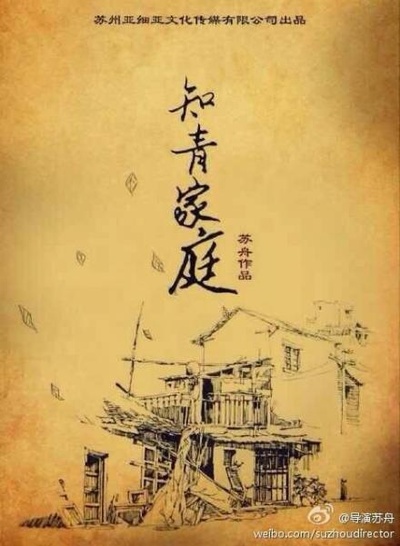 苏州亚细亚文化传媒有限公司出品
知青家庭
苏舟作品
@导演苏舟
weibo.com/suzhoudirector